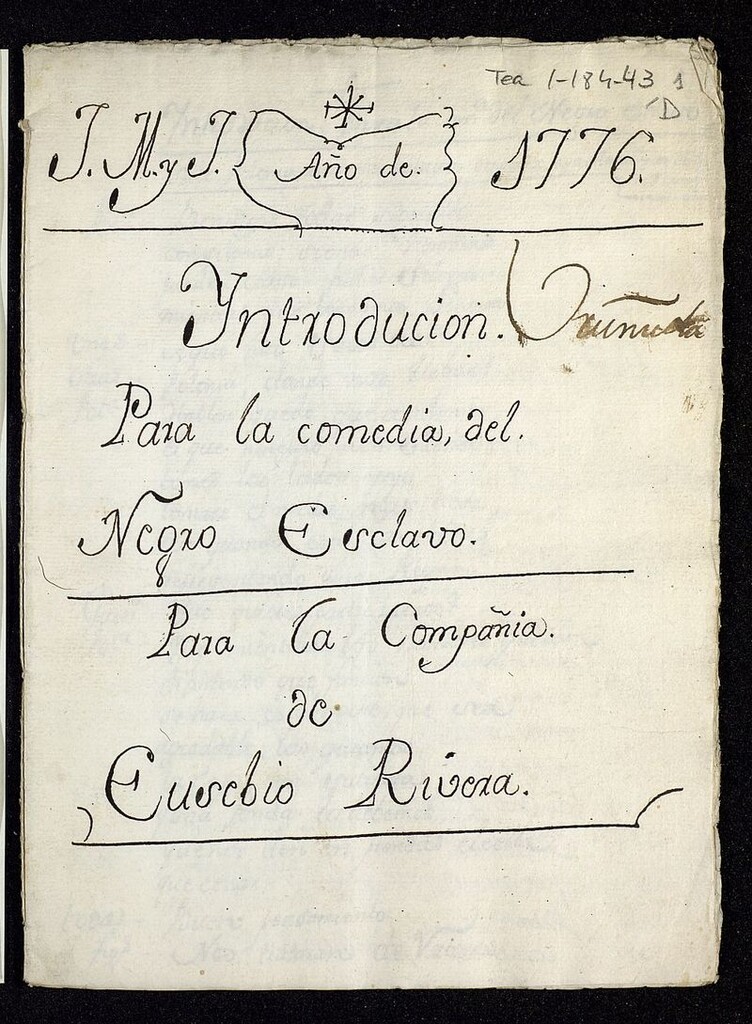 Tea 1-184-43 1
D
J. M. y J. Año de. 1776.
Introducion.
Para la comedia, del.
Negro Esclavo.
Para la Compañia.
de
Eusebio Rivera.